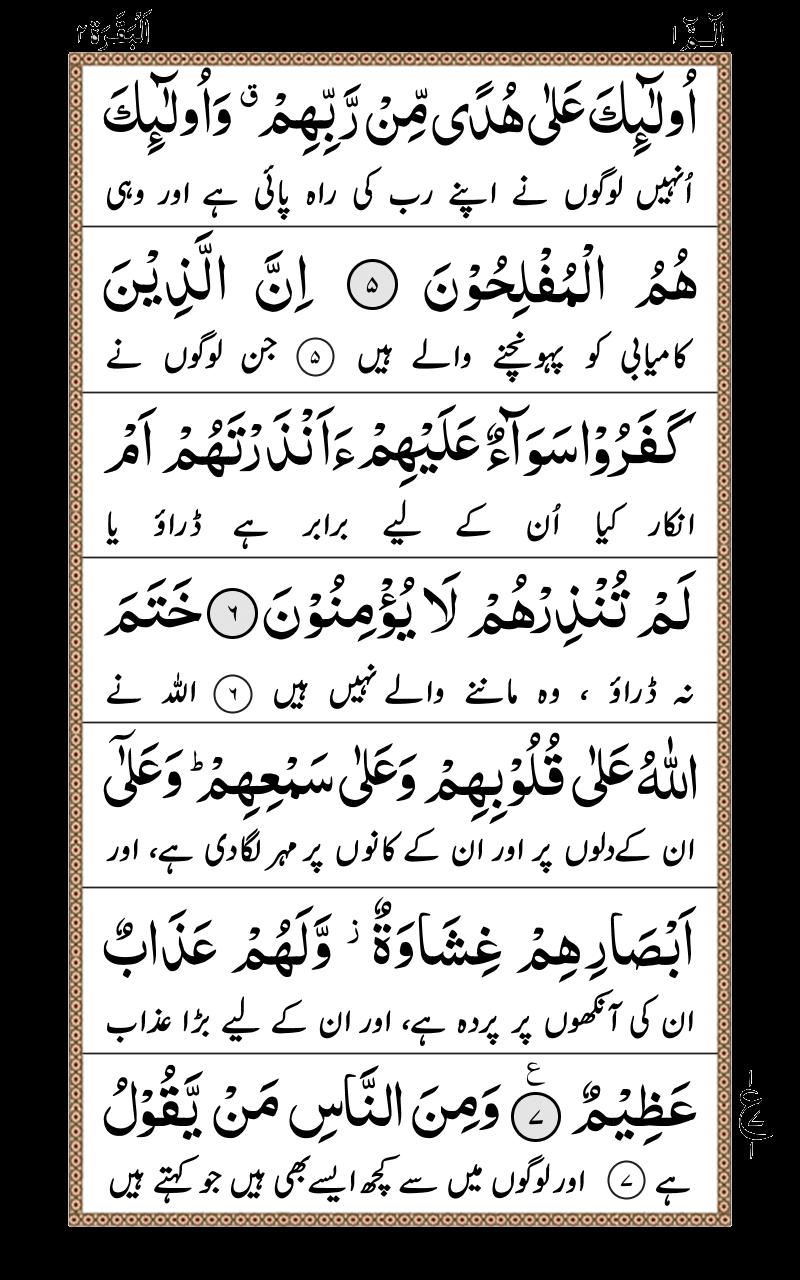 الٓمّٓ ١
اَلْبَقَرَة ٢
اُولٰٓئِكَ عَلٰى هُدًى مِّنْ رَّبِّهِمْ ۗ وَاُولٰٓئِكَ
اُنہیں لوگوں نے اپنے رب کی راہ پائی ہے اور وہی
هُمُ الْمُفْلِحُوْنَ ۵ اِنَّ الَّذِيْنَ
کامیابی کو پہونچنے والے ہیں ۵ جن لوگوں نے
كَفَرُوْا سَوَآءٌ عَلَيْهِمْ ءَاَنْذَرْتَهُمْ اَمْ
انکار کیا اُن کے لیے برابر ہے ڈراؤ یا
لَمْ تُنْذِرْهُمْ لَا يُؤْمِنُوْنَ ۶ خَتَمَ
نہ ڈراؤ ، وہ ماننے والے نہیں ہیں ۶ اللہ نے
اللّٰهُ عَلٰى قُلُوْبِهِمْ وَعَلٰى سَمْعِهِمْ ؕ وَعَلٰٓى
ان کے دلوں پر اور ان کے کانوں پر مہر لگادی ہے، اور
اَبْصَارِهِمْ غِشَاوَةٌ ز وَّلَهُمْ عَذَابٌ
ان کی آنکھوں پر پردہ ہے، اور ان کے لیے بڑا عذاب
عَظِيْمٌ ۷ ع وَمِنَ النَّاسِ مَنْ يَّقُوْلُ
ہے ۷ اور لوگوں میں سے کچھ ایسے بھی ہیں جو کہتے ہیں